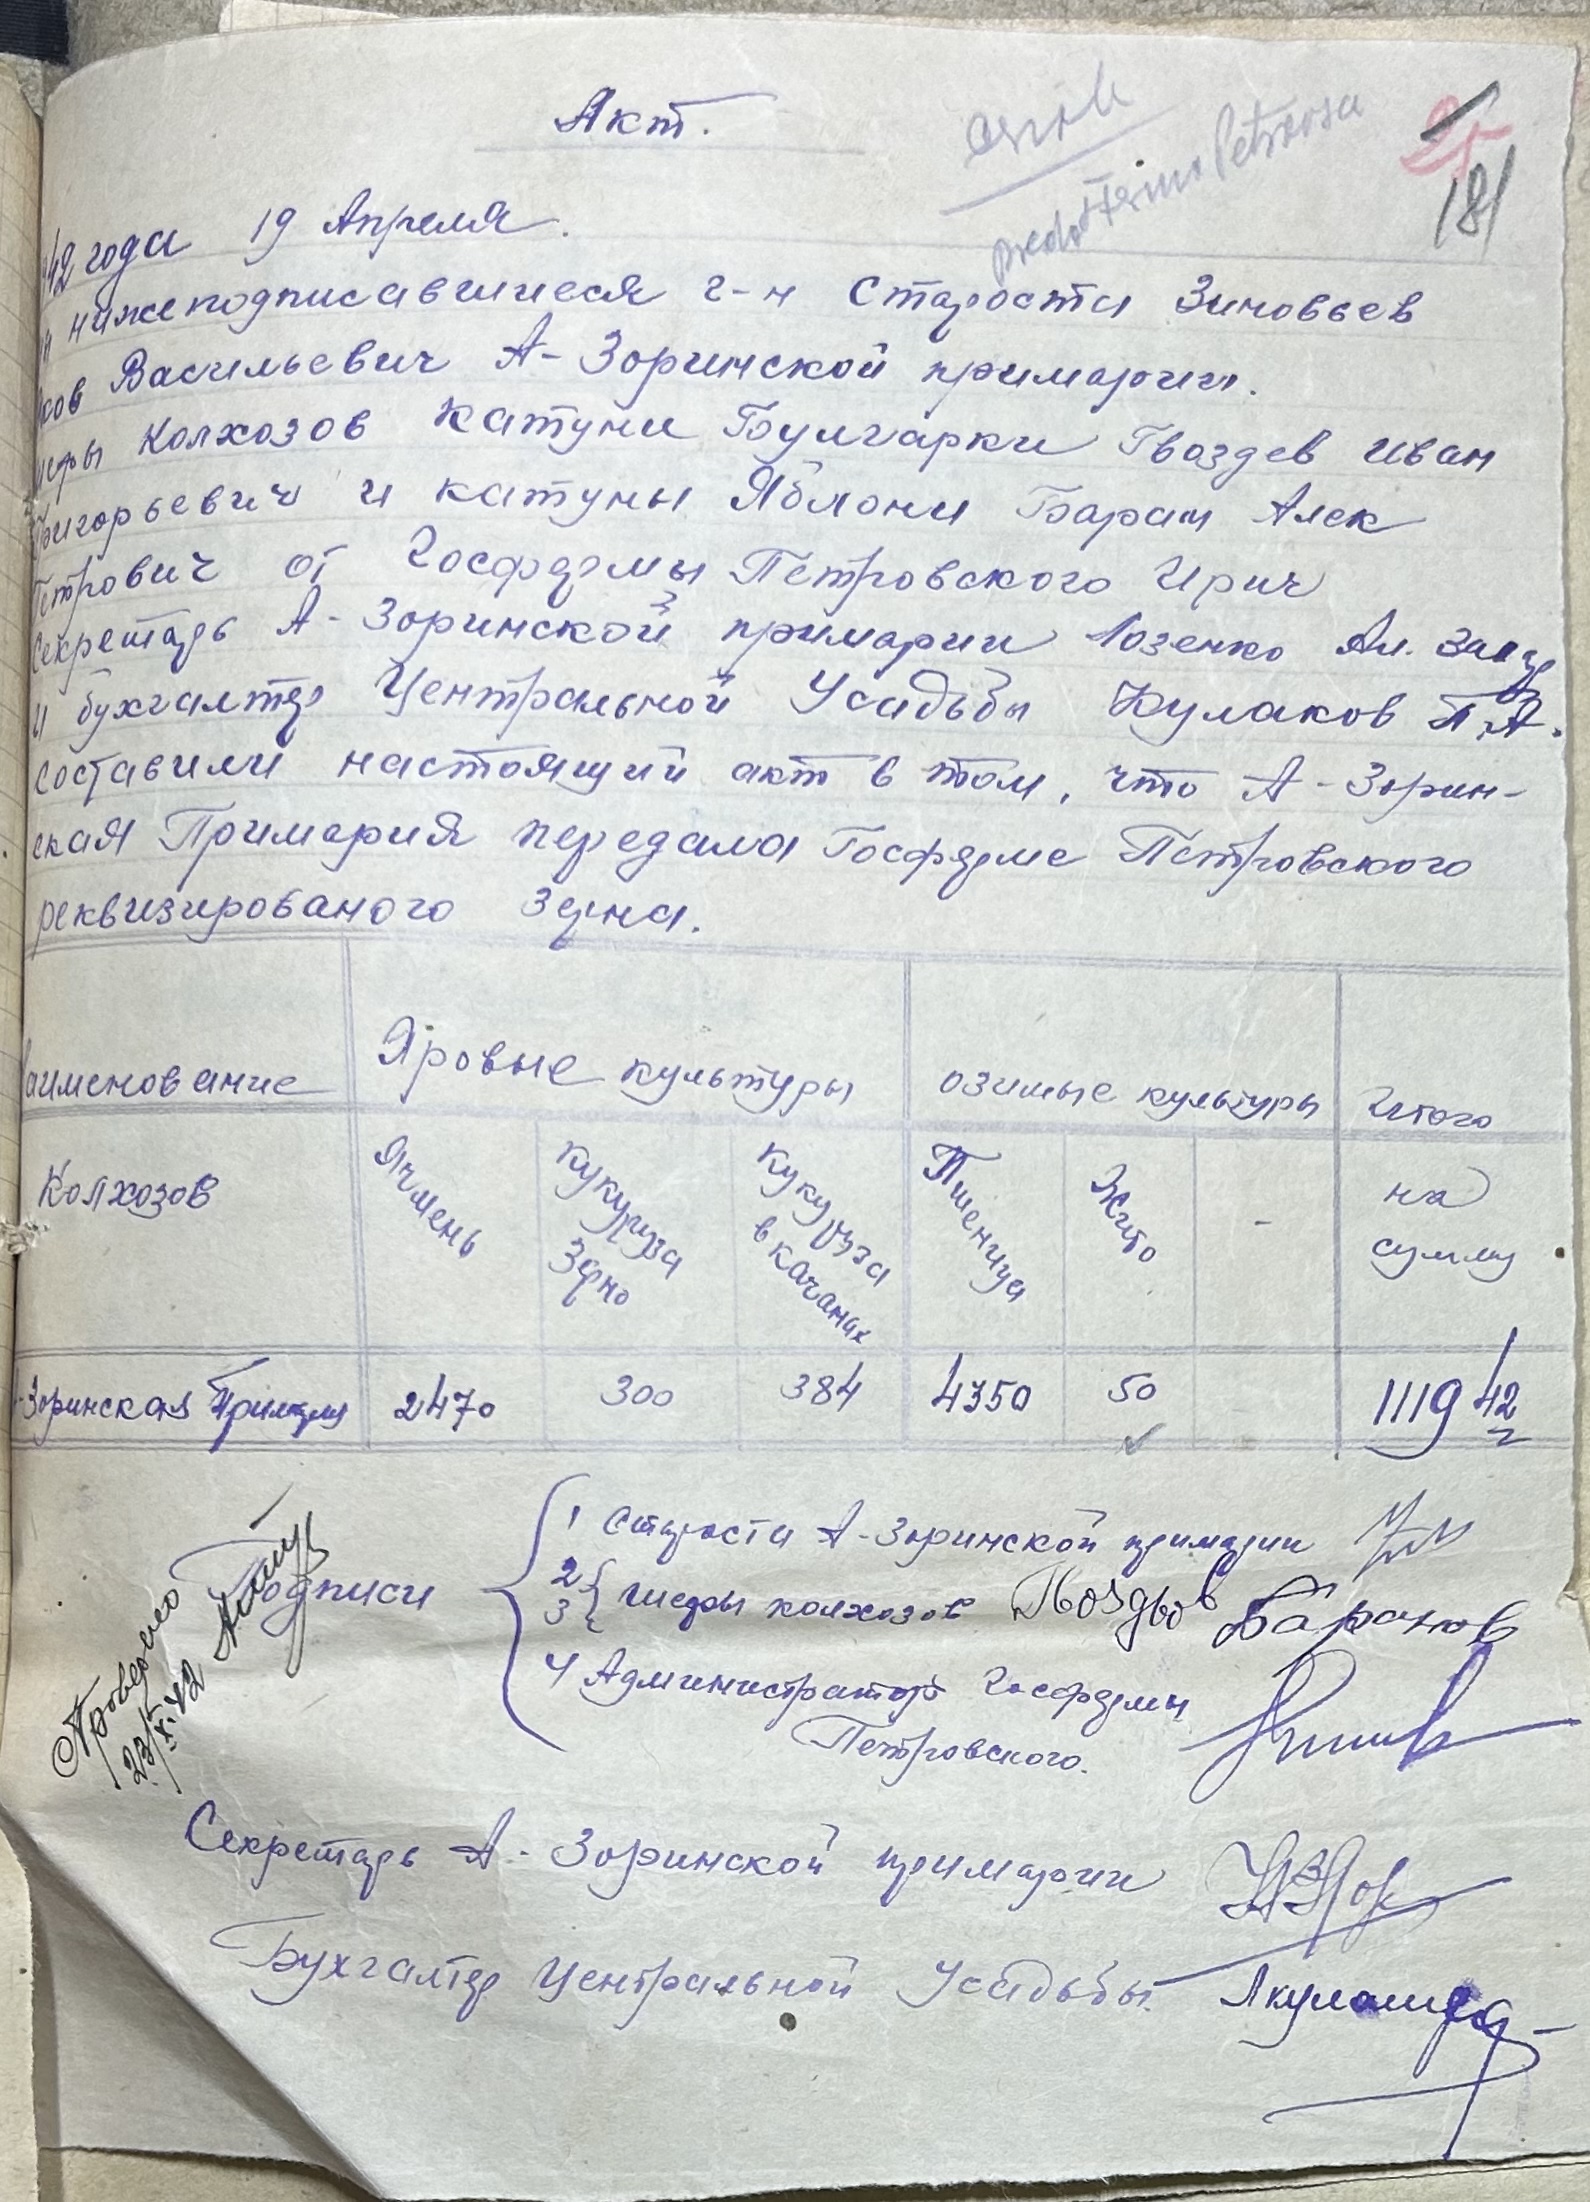 Акт.
181
42 года 19 Апреля.
нижеподписавшиеся г-н Староста Зиновьев
ков Васильевич А-Зоринской примарии.
шефы Колхозов Катуни Булгарки Гвоздев Иван
Григорьевич и катуны Яблони Баран Алек
Петрович от Госфермы Петровского Ирич
Секретарь А-Зоринской примарии Лозенко Ал.
и бухгалтер Центральной Усадьбы Кулаков П.А.
составили настоящий акт в том, что А-Зорин-
ская Примария передала Госферме Петровского
реквизированого зерна.
аименование Яровые культуры озимые культуры Итого
Колхозов Ячмень кукуруза зерно кукуруза в качанах Пшеница Жито - на сумму
-Зоринская Примария 2470 300 384 4350 50 1119 42
Подписи
1 Староста А-Зоринской примарии
2 3 шефы колхозов Гвоздьов Баранов
4 Администратор Госфермы
Петровского.
Проверено
23/X-42
Секретарь А-Зоринской примарии
Бухгалтер Центральной Усадьбы.